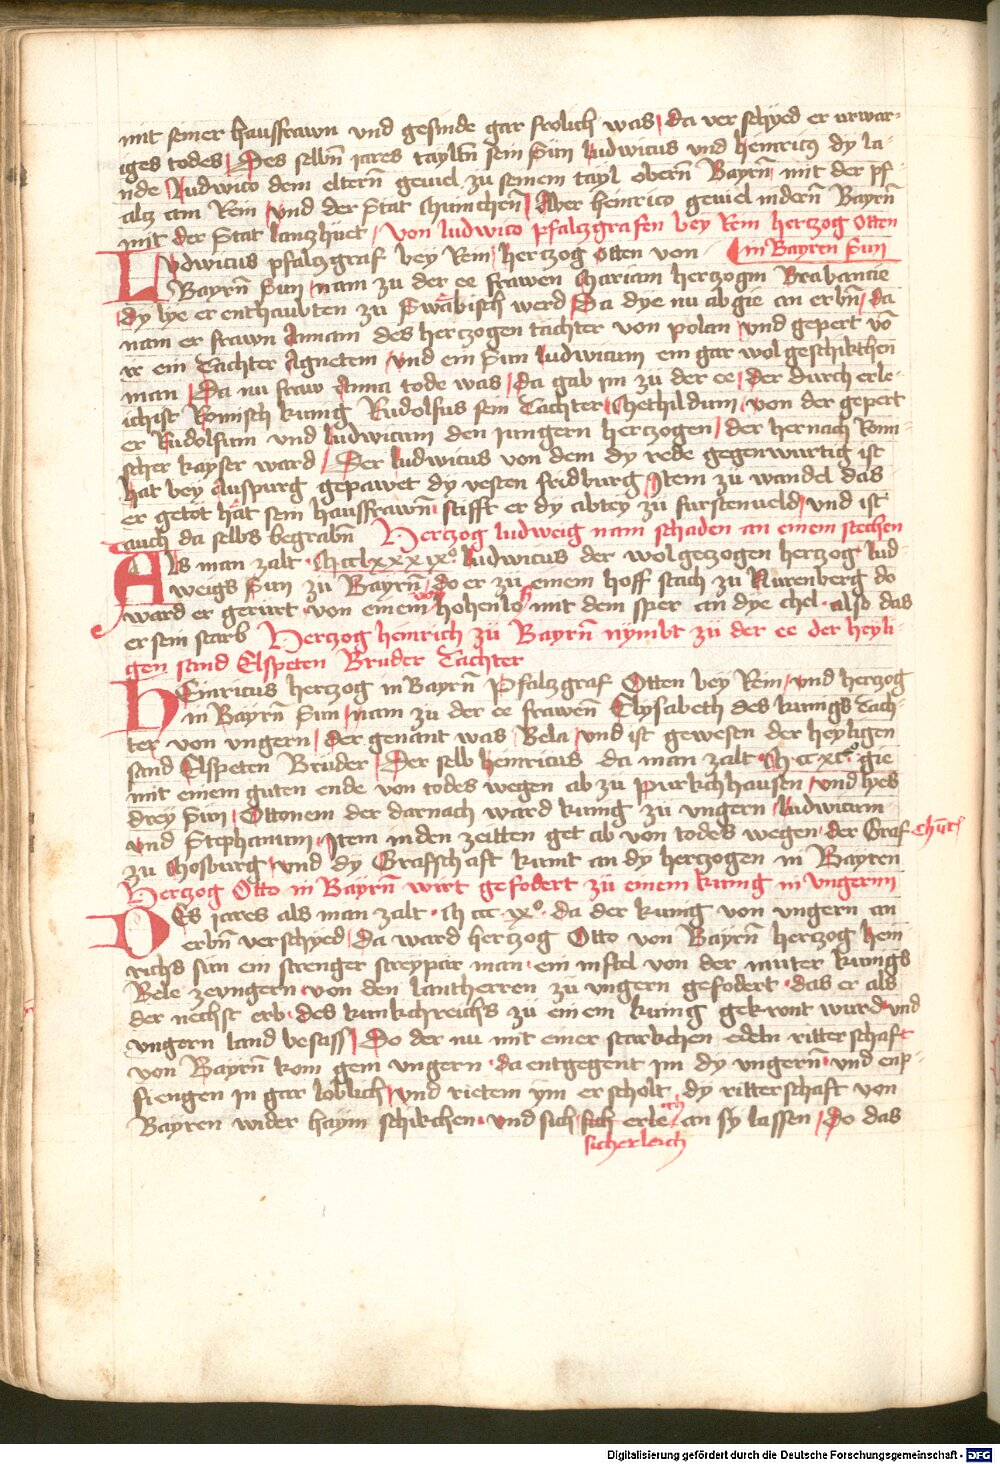 mit seiner hausfrawn und gesinde gar frolich was / da verschyed er urwar-
iges todes / Des selbn̄ jares tayltn̄ sein Sün Ludwicus und heinricꝰ dy la-
nde / Ludwico dem elternn̄ geviel zu seinem tayl obern̄ Bayrn̄ mit der pf-
alcz am Rein / und der Stat Münichen̄ / Aber heinrico geviel nidern̄ Bayrn̄
mit der Stat lanczhuet / Von ludwico pfalczgrafen bey Rein herczog Otten
in Bayren Sun
Ludwicus pfalczgraf bey Rein / herczog Otten von
Bayrn̄ Sun / nam zu der ee frawen Mariam herczogin Brabancie
dy lye er enthaubten zu Swäbisch werd / Da dye nu ab gie an erbn̄ / da
nam er frawn Annam des herczogen tachter von polan / und gepert vō
ir ein Tachter Agnetem / und ein Sun Ludwicum ein gar wolgeschikchten
man / Da nu fraw Anna tode was / da gab im zu der ee / der durch erle-
ichist Romisch kunig Rudolfus sein Tachter / Methildim / von der gepert
er Rudolfum und ludwicum den jungern herczogen / der hernach Romi-
scher kayser ward / Der ludwicus von dem dy rede gegenwurtig ist
hat bey Auspurg gepawet dy vesten fridburg / Item zu wandel das
er getöt hat sein hausfrawn̄ / stifft er dy abtey zu furstenveld / und ist
auch da selbs begrabn̄ Herczog ludweig nam schaden an einem stechen
Als man zalt · M cc lxxxix° · ludwicus der wolgeczogen herczog Lud-
weigs Sun zu Bayrn̄ / do er zu einem hoff stach zu Nurenberg do
ward er gerürt · von einem von hohenloh mit dem sper an dye chel · also das
er sein starb Herczog heinrich zü Bayrn̄ nymbt zü der ee der heyli-
gen sand Elspeten Bruder Tachter
HEinricus herczog in Bayrn̄ Pfalczgraf Otten bey Rein / und herczog
in Bayrn̄ Sun / nam zu der ee frawen̄ Elysabeth des kunigs Tach-
ter von ungern / der genant was Bela / und ist gewesen der heyligen
sand Elspeten Bruder / Der selb heinricus da man zalt · M · cc xc° · gie
mit einem guten ende von todes wegen ab zu purkchhausen / und lyes
drey Sun / Ottonem der darnach ward kunig zu ungern / ludwicum
und Stephanum / Item in den zeitten get ab von todes wegen · der Graf
zu Mosburg / und dy Grafschaft kumt an dy herczogen in Bayren
Herczog Otto in Bayrn̄ wirt gefodert zü einem kunig in Ungernn
DEs jares als man zalt · M ccc · ix° · da der kunig von ungern an
erbn̄ verschyed / Da ward herczog Otto von Bayrn̄ herczog hein
richs sun ein strenger streypär man · ein niftel von der muter kunigs
Bele ze ungern · von den lantherren zu ungern gefodert · das er als
der nechst erb · des kunikchreichs zü einem kunig gekront wurd · und
ungern land besass / Do der nu mit einer starkchen edeln ritterschaft
von Bayrn̄ kom gein ungern · da entgegent im dy ungern̄ · und enp-
fiengen in gar loblich / und rietem ym er scholt / dy ritterschaft von
Bayren wider haym schikchen · und sich sich erleich an sy lassen / Do das
sicherleich